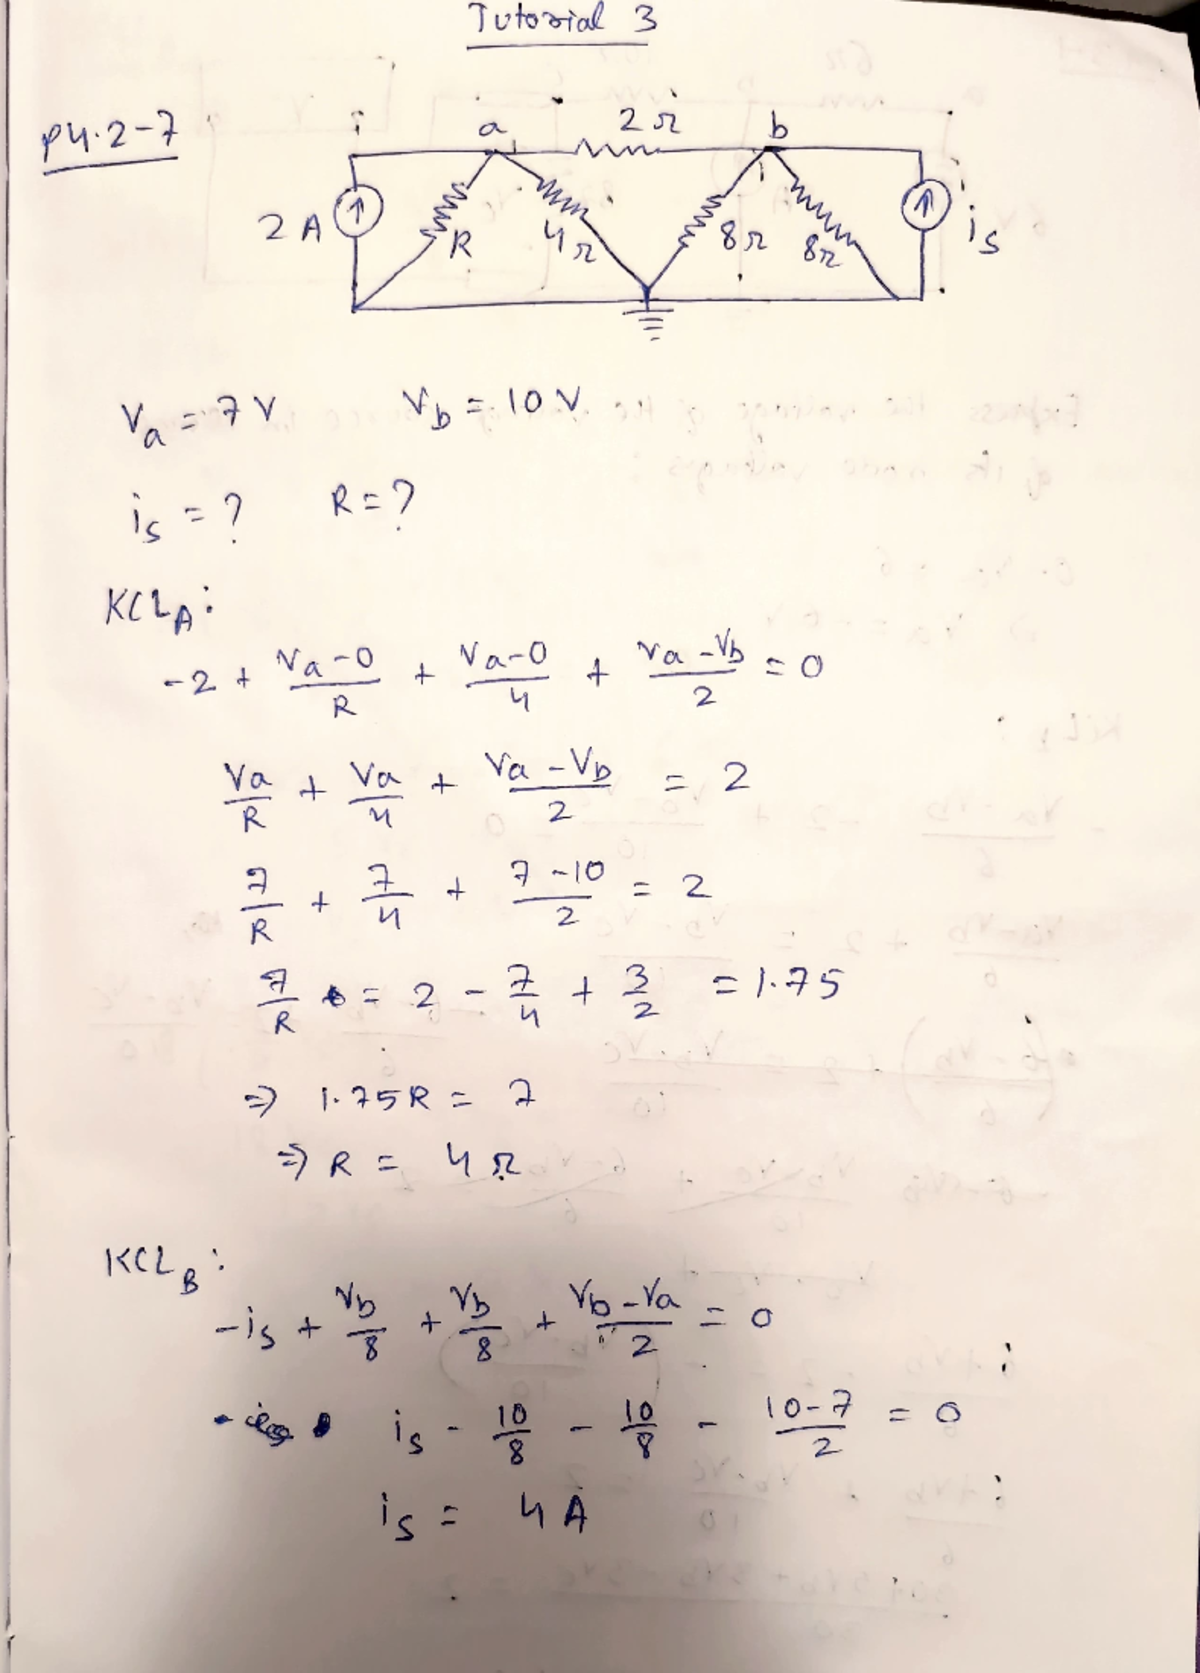 Tutorial 3
P4.2-7
i a 2Ω b
2 A R 4Ω 8Ω 8Ω is
Va = 7 V Vb = 10 V
is = ? R = ?
KCL_A :
-2 + (Va-0)/R + (Va-0)/4 + (Va-Vb)/2 = 0
Va/R + Va/4 + (Va-Vb)/2 = 2
7/R + 7/4 + (7-10)/2 = 2
7/R = 2 - 7/4 + 3/2 = 1.75
⇒ 1.75R = 7
⇒ R = 4 Ω
KCL_B :
-is + Vb/8 + Vb/8 + (Vb-Va)/2 = 0
is - 10/8 - 10/8 - (10-7)/2 = 0
is = 4 A